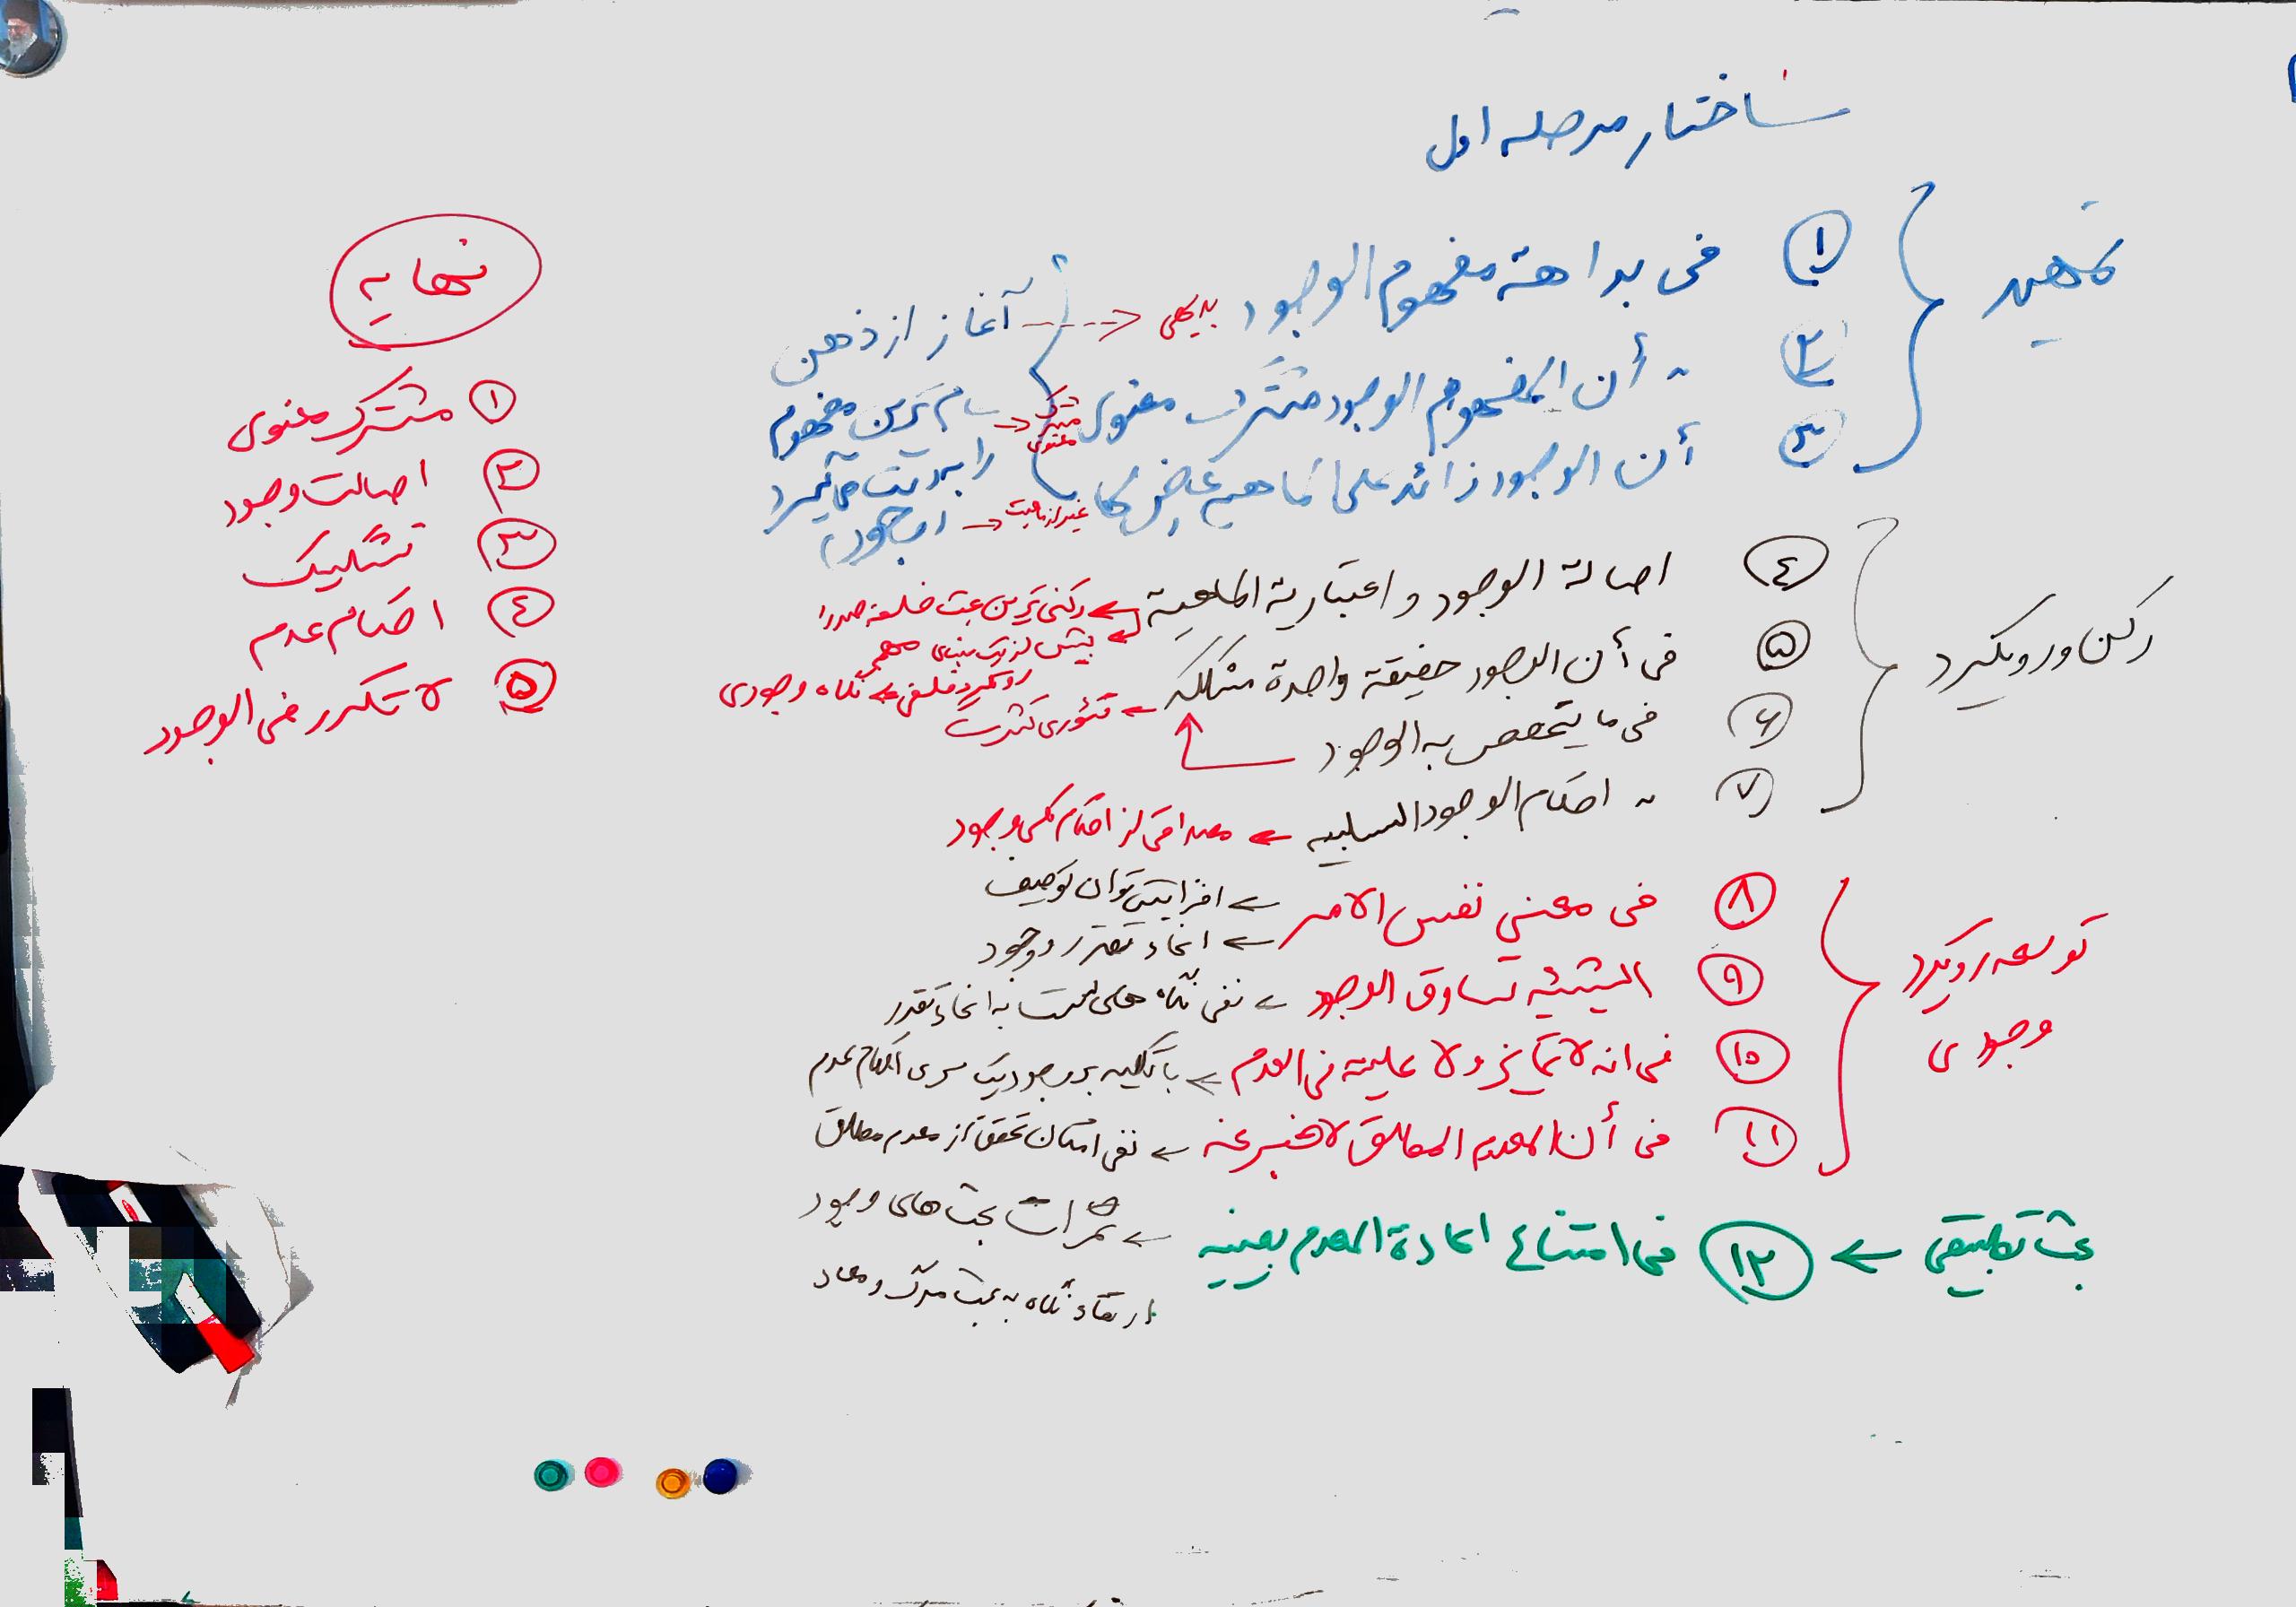 ساختار مرحله اول
تمهید
۱ فی بداهة مفهوم الوجود بدیهی
آغاز از ذهن
۲ أن المفهوم الوجود مشترک معنوی مشترک معنوی
عام ترین مفهوم
۳ أن الوجود زائد علی الماهیة عارض لها غیر از ماهیت
را بدست می‌گیرد
(وجود)
رکن و رویکرد
٤ اصالة الوجود و اعتباریة الماهیة ← رکنی ترین بحث فلسفه صدرا
بیش از یک بنیان مهم
رویکرد فلسفی ← نگاه وجودی
۵ فی أن الوجود حقیقة واحدة مشککه ← تئوری کثرت
۶ فی ما یتخصص به الوجود
۷ احکام الوجود السلبیه ← مصداقی از احکام کلی وجود
توسعه رویکرد وجودی
۸ فی معنی نفس الامر ← افزایش توان توصیف
← انحاء تقرر وجود
۹ الشیئیه تساوق الوجود ← نفی نگاه های نسبت به انحاء تقرر
۱۰ فی انه لا تمایز و لا علیة فی العدم ← با تکیه بر وجود یک سری احکام عدم
۱۱ فی أن المعدوم المطلق لا خبر عنه ← نفی امکان تحقق از معدوم مطلق
بحث تطبیقی ← ۱۲ فی امتناع اعادة المعدوم بعینه ← ثمرات بحث های وجود
ارتقاء نگاه به بحث مرگ و معاد
نهایه
۱ مشترک معنوی
۲ اصالت وجود
۳ تشکیک
٤ احکام عدم
۵ لا تکرر فی الوجود